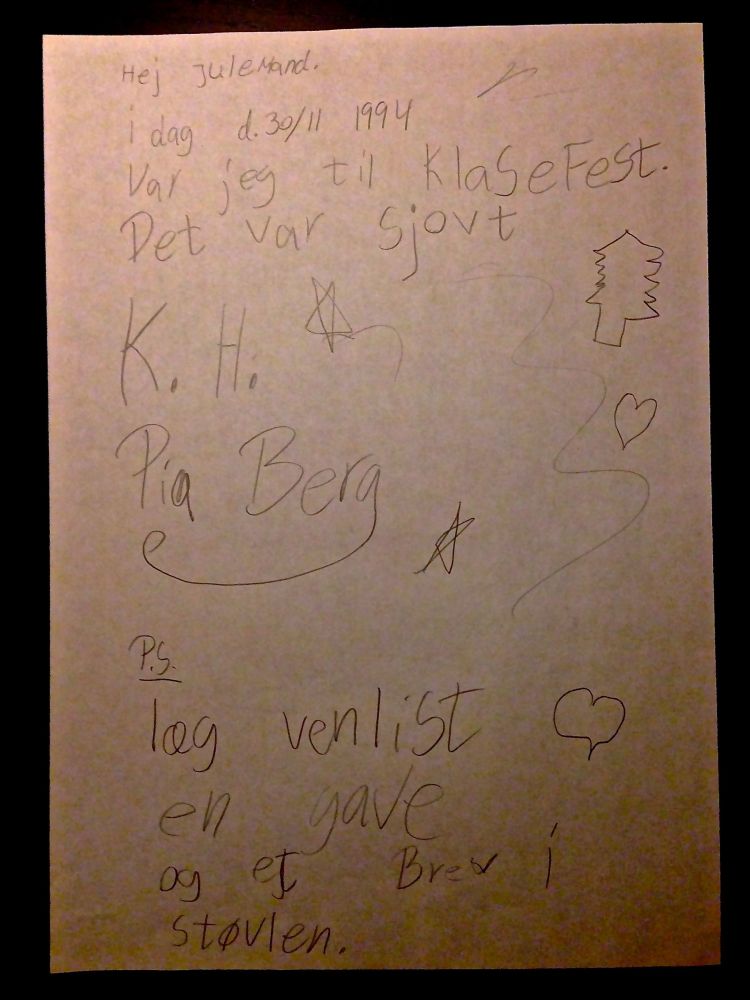 Hej Julemand.
i dag d. 30/11 1994
Var jeg til KlaseFest.
Det var sjovt
K. H.
Pia Berg
P.S.
læg venlist
en gave
og et Brev i
støvlen.